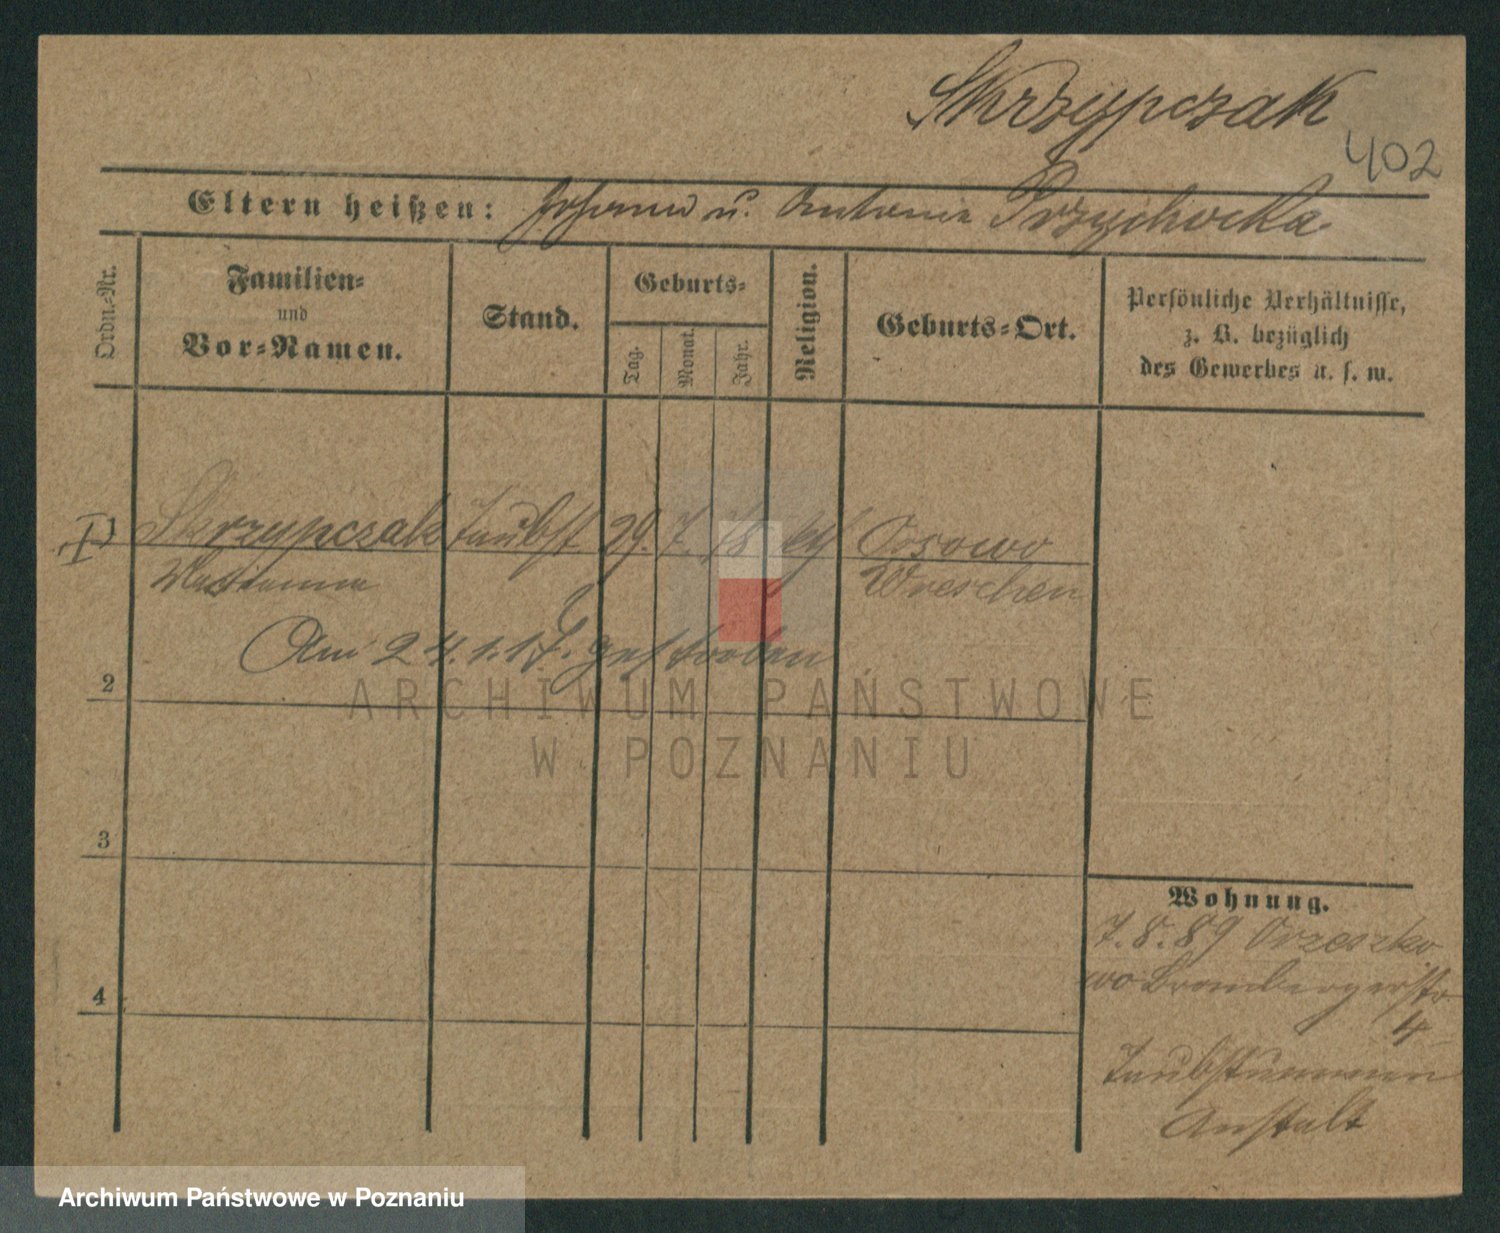 Skrzypczak
402
Eltern heißen: Johann u. Antonie Przychocka.
Ordn.-Nr.
Familien-
und
Vor-Namen.
Stand.
Geburts-
Tag.
Monat.
Jahr.
Religion.
Geburts-Ort.
Persönliche Verhältnisse,
z. B. bezüglich
des Gewerbes u. s. w.
I 1 Skrzypczak Taubst 29. 7. 78 Ossowo
Marianna Wreschen
Am 24.1.17. gestorben
2
3
4
Wohnung.
7.8.89 Orzeszko
wo Brombergerstr
4
Taubstummen
Anstalt
ARCHIWUM PAŃSTWOWE
W POZNANIU
Archiwum Państwowe w Poznaniu